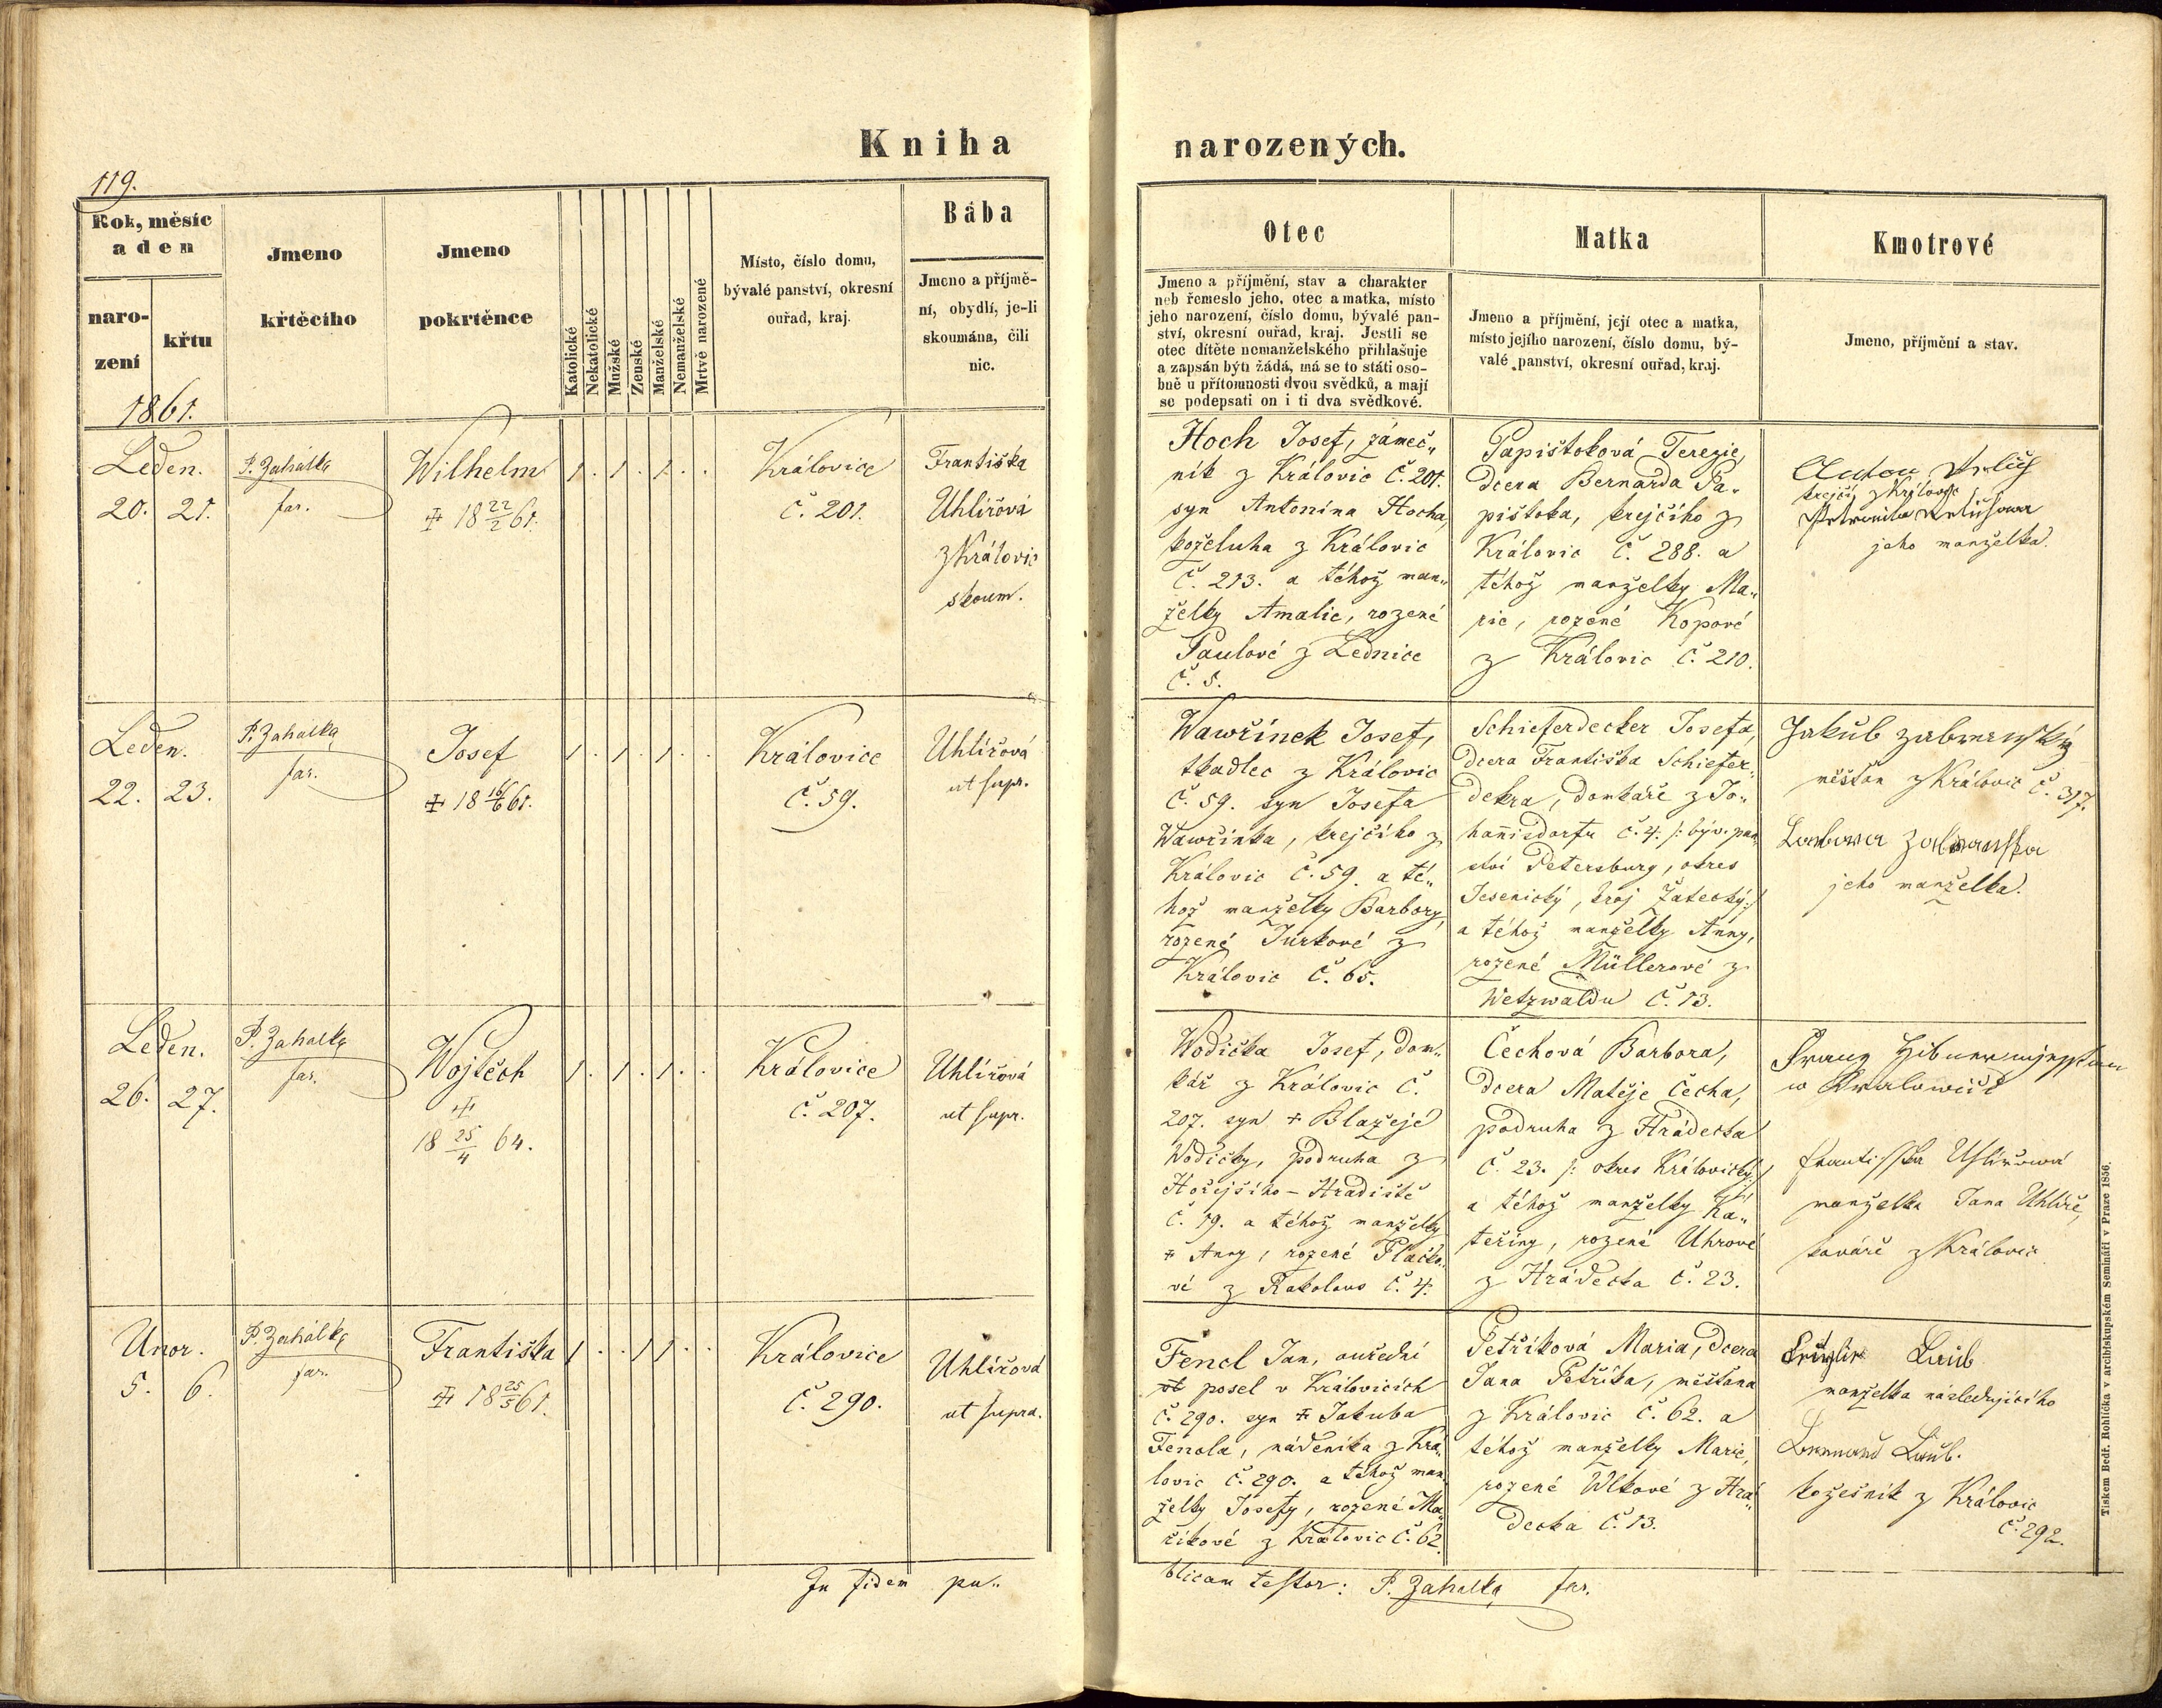 Kniha narozených.
119.
Rok, měsíc
a den
naro-
zení
křtu
1861.
Jmeno
křtěcího
Jmeno
pokrtěnce
Katolické
Nekatolické
Mužské
Ženské
Manželské
Nemanželské
Mrtvě narozené
Místo, číslo domu,
bývalé panství, okresní
ouřad, kraj.
Bába
Jmeno a příjmě-
ní, obydlí, je-li
skoumána, čili
nic.
Otec
Jmeno a příjmění, stav a charakter
neb řemeslo jeho, otec a matka, místo
jeho narození, číslo domu, bývalé pan-
ství, okresní ouřad, kraj. Jestli se
otec dítěte nemanželského přihlašuje
a zapsán býti žádá, má se to státi oso-
bně u přítomnosti dvou svědků, a mají
se podepsati on i ti dva svědkové.
Matka
Jmeno a příjmění, její otec a matka,
místo jejího narození, číslo domu, bý-
valé panství, okresní ouřad, kraj.
Kmotrové
Jmeno, příjmění a stav.
Leden.
20. 21.
P. Zahálka
far.
Wilhelm
‡ 18 22/2 61.
1 . 1 . 1 . .
Královice
č. 201.
Františka
Uhlířová
z Královic
skoum.
Hoch Josef, zámeč„
ník z Královic č. 201.
syn Antonína Hocha,
koželuha z Královic
č. 213. a téhož man„
želky Amalie, rozené
Paulové z Lednice
č. 5.
Papištoková Terezie,
dcera Bernarda Pa„
pištoka, krejčího z
Královic č. 288. a
téhož manželky Ma„
rie, rozené Kopové
z Královic č. 210.
Anton
krejčí z Královic
jeho manželka.
Leden.
22. 23.
P. Zahálka
far.
Josef
‡ 18 16/6 61.
1 . 1 . 1 . .
Královice
č. 59.
Uhlířová
ut supr.
Wawřínek Josef,
tkadlec z Královic
č. 59. syn Josefa
Wawřínka, krejčího z
Královic č. 59. a té„
hož manželky Barbory,
rozené Jurkové z
Královic č. 65.
Schieferdecker Josefa,
dcera Františka Schiefer„
dekra, domkáře z Jo„
hannisdorfu č. 4. /: býv. pan„
ství Petersburg, okres
Jesenický, kraj Žatecký :/
a téhož manželky Anny,
rozené Müllerové z
Wetzwaldu č. 13.
Jakub Zabranský
měšťan z Královic č. 317.
jeho manželka.
Leden.
26. 27.
P. Zahálka
far.
Wojtěch
‡
18 25/4 64.
1 . 1 . 1 . .
Královice
č. 207.
Uhlířová
ut supr.
Wodička Josef, dom„
kář z Královic č.
207. syn ‡ Blažeje
Wodičky, podruha z
Hořejšího-Hradiště
č. 19. a téhož manželky
‡ Anny, rozené Plačko„
vé z Rakolous č. 4.
Čechová Barbora,
dcera Matěje Čecha,
podruha z Hrádecka
č. 23. /: okres Královický :/
a téhož manželky Ka„
teřiny, rozené Uhrové
z Hrádecka č. 23.
Franz Hibner
w Kralowicich
Frantisska Uhlirowá
manželka Jana Uhlíře,
kováře z Královic
Unor.
5. 6.
P. Zahálka
far.
Františka
‡ 18 25/5 61.
1 . . 1 1 . .
Královice
č. 290.
Uhlířová
ut supra.
Fencl Jan, ouřední
posel v Královicích
č. 290. syn ‡ Jakuba
Fencla, nádeníka z Krá„
lovic č. 290. a téhož man„
želky Josefy, rozené Ma„
říkové z Královic č. 62.
Petříková Maria, dcera
Jana Petříka, měšťana
z Královic č. 62. a
téhož manželky Marie,
rozené Wlkové z Hrá„
decka č. 13.
Laub
manželka následujícího
Bernard Laub.
kožešník z Královic
č. 292.
In fidem pu„
blicam testor: P. Zahálka far.
Tiskem Bedř. Rohlíčka v arcibiskupském Semináři v Praze 1856.